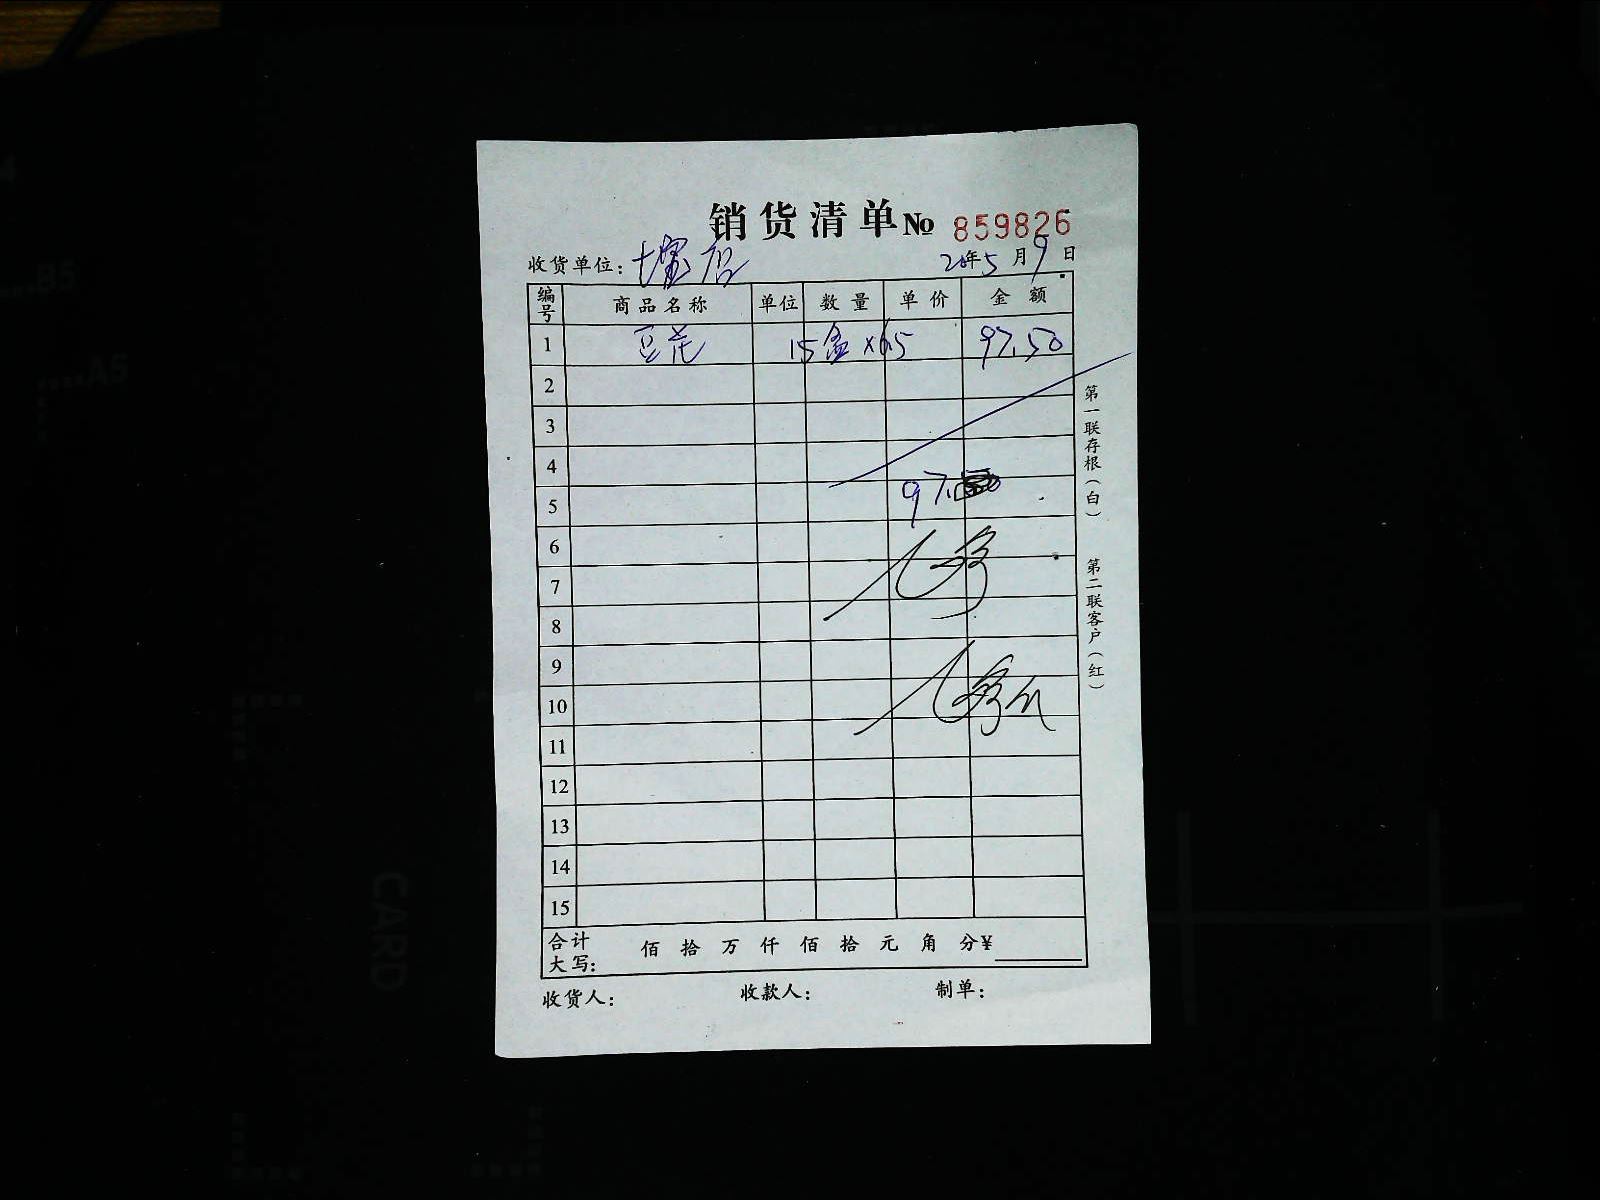 销货清单 № 859826
收货单位: 20年5月9日
编号 商品名称 单位 数量 单价 金额
1 豆花 15盒×6.5 97.50
2
3
4
5 97.
6
7
8
9
10
11
12
13
14
15
合计大写: 佰 拾 万 仟 佰 拾 元 角 分¥
收货人: 收款人: 制单:
第一联存根(白) 第二联客户(红)
B5
A5
CARD